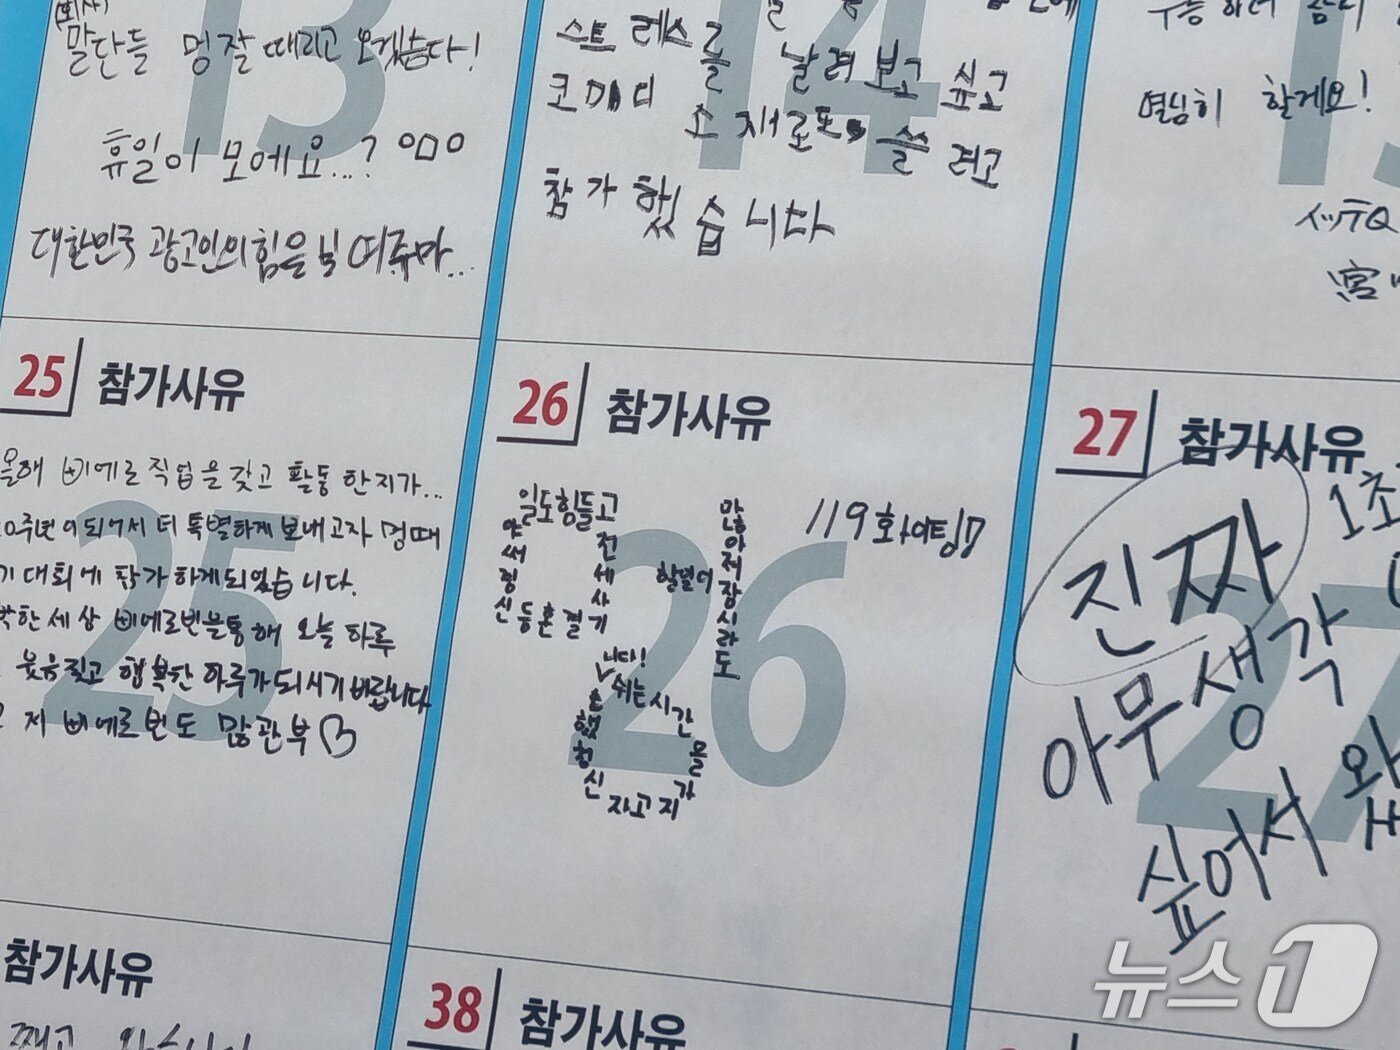 (회사)
말단들 멍잘때리고 오겠습다!
휴일이 모에요...? ㅇㅁㅇ
대한민국 광고인의 힘을 보여주마...
13
스트레스를 날려보고 싶고
코미디 소재로도 쓸려고
참가했습니다
14
열심히 할게요!
25 참가사유
올해 삐에로 직업을 갖고 활동한지가...
20주년이 되어서 더 특별하게 보내고자 멍때
기대회에 참가하게되었습니다.
각한세상 삐에로빈을통해 오늘 하루
웃음짓고 행복한 하루가되시기 바랍니다
저 삐에로빈도 많관부♡
25
26 참가사유
일도힘들고
전세사기
결혼등등
신경써야
할일이
많아져잠시라도
쉬는시간을
가지고자
신청했습니다!
119화이팅!!
26
27 참가사유
진짜
1초
아무생각
싶어서 왔
27
참가사유
38 참가사유
뉴스1